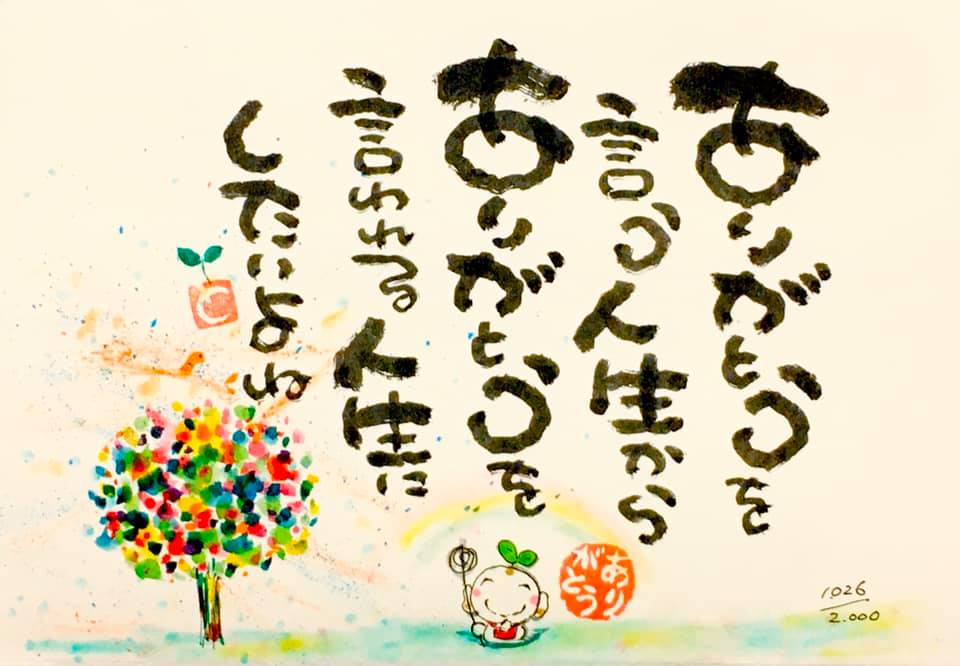 ありがとうを
言う人生から
ありがとうを
言われる人生に
したいよね
あり
がとう
1026
2.000